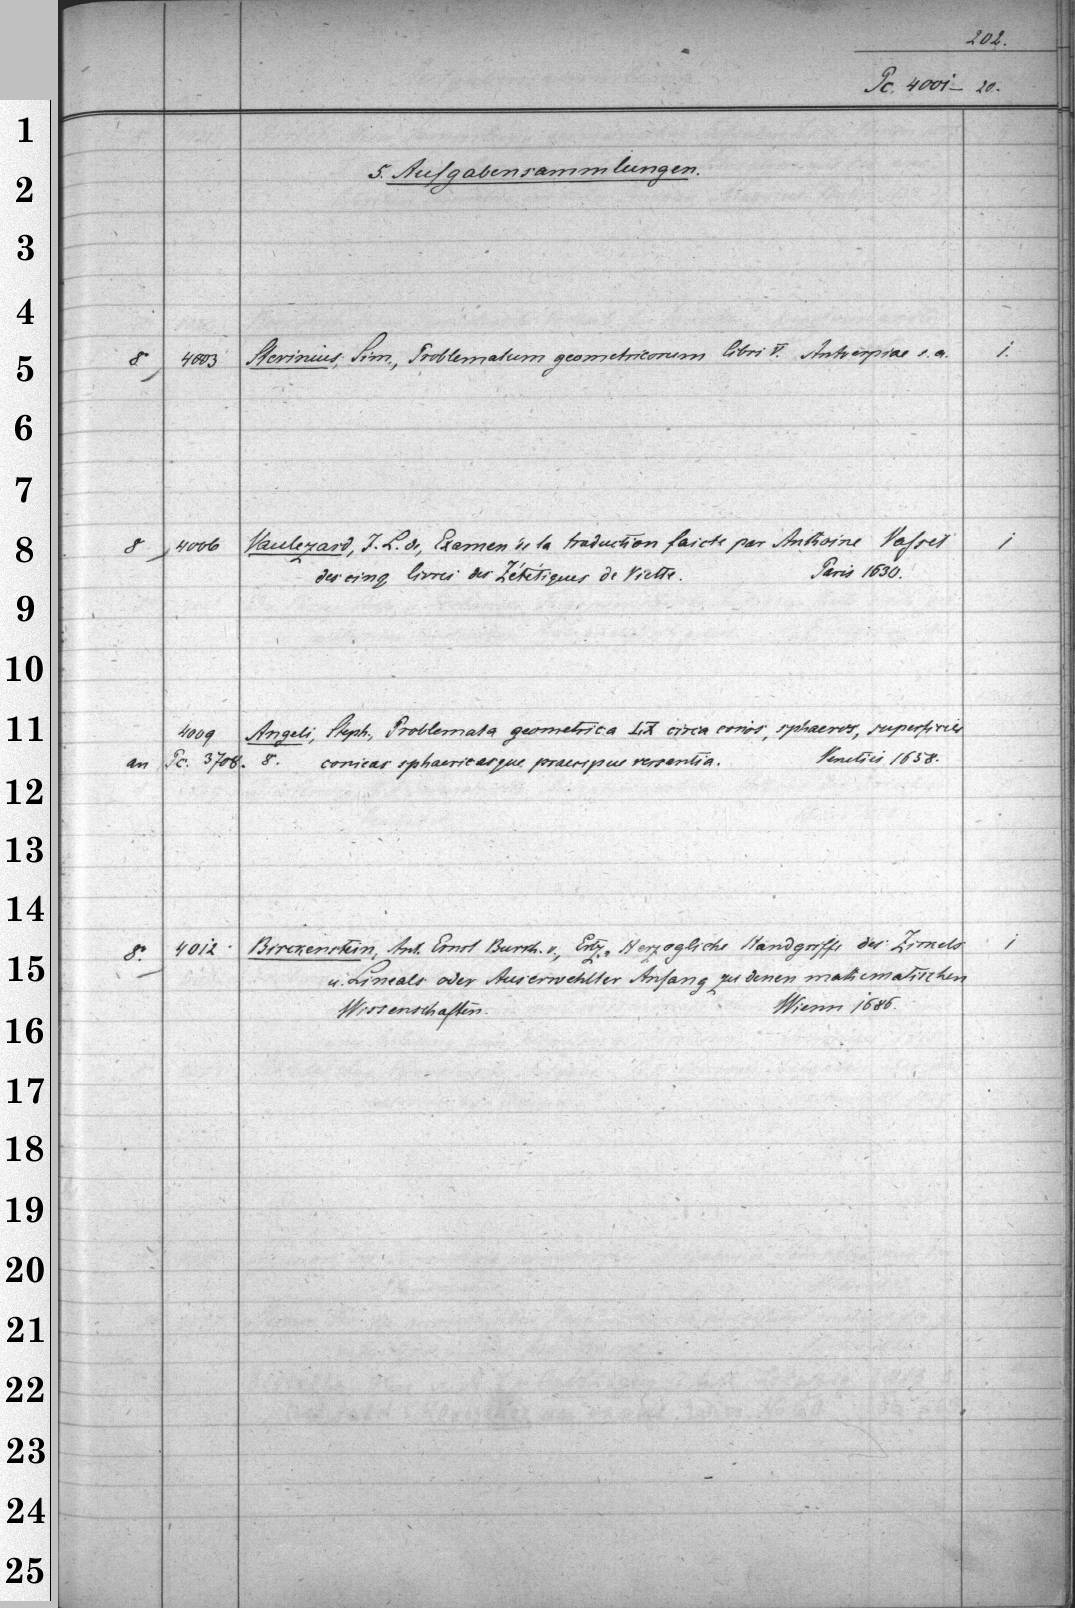 202.
Pc. 4001– 20.
5. Aufgabensammlungen.
8 4003 Stevinius, Sim., Problematum geometricorum libri V. Antverpiae s. a. 1.
8 4006 Vaulezard, J. L. de, Examen de la traduction faicte par Anthoine Vasset 1
des cinq livres des Zététiques de Viette. Paris 1630.
4009 Angeli, Steph., Problemata geometrica LX circa conos, sphaeras, superficies
an Pc. 3708. 8. conicas sphaericasque praecipue versantia. Venetiis 1658.
8. 4012 Birckenstein, Ant. Ernst Burkh. v., Ertz-Herzogliche Handgriffe des Zirkels 1
u. Lineals oder Auserwehlter Anfang zu denen mathematischen
Wissenschaften. Wienn 1686.
1
2
3
4
5
6
7
8
9
10
11
12
13
14
15
16
17
18
19
20
21
22
23
24
25